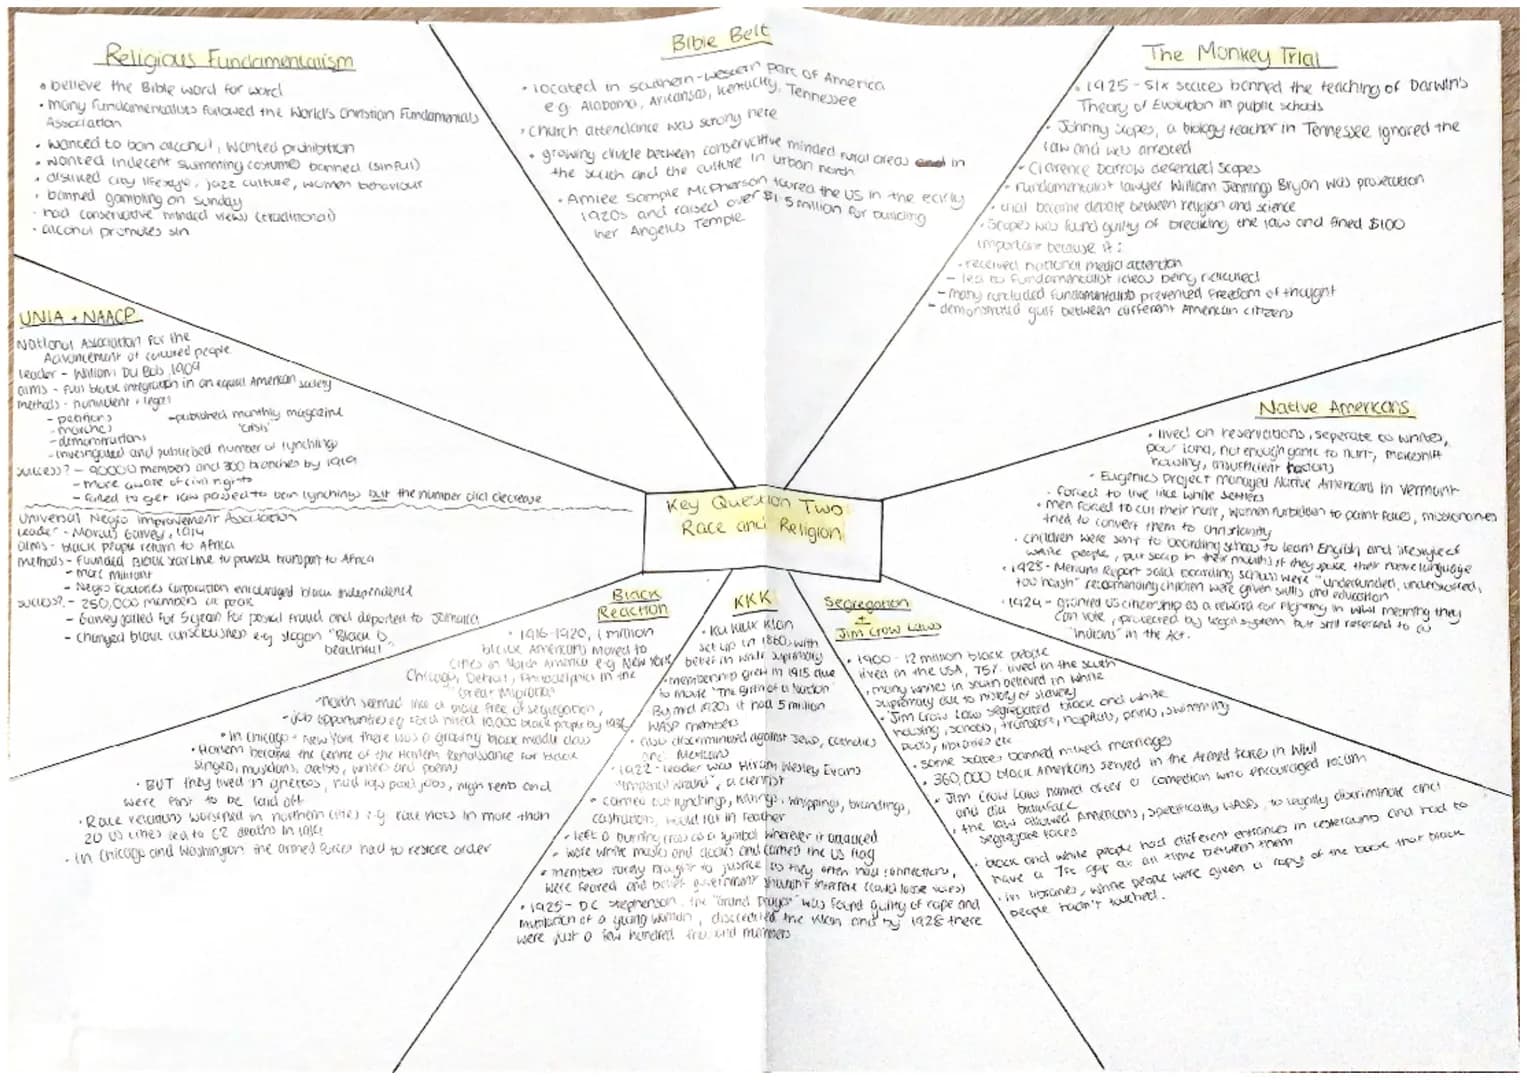 Religious Fundamentalism
• believe the Bible word for word
• many fundamentalists followed the World's Christian Fundamentals
Association
• wanted to ban alcohol, wanted prohibition
• wanted indecent swimming costumes banned (sinful)
• disliked city lifestyle, jazz culture, women behaviour
• banned gambling on Sunday
• had conservative minded views (traditional)
• alcohol promotes sin
Bible Belt
• located in southern-western part of America
e.g Alabama, Arkansas, Kentucky, Tennessee
• church attendance was strong here
• growing divide between conservative minded rural areas in
the south and the culture in urban north
• Amiee Sample McPherson toured the US in the early
1920s and raised over $1.5 million for building
her Angelus Temple
The Monkey Trial
• 1925 - six states banned the teaching of Darwin's
Theory of Evolution in public schools
• Johnny Scopes, a biology teacher in Tennessee ignored the
law and was arrested
• Clarence Darrow defended Scopes
• Fundamentalist lawyer William Jennings Bryan was prosecution
• trial become debate between religion and science
• Scopes was found guilty of breaking the law and fined $100
important because it:
- received national media attention
- led to fundamentalist ideas being ridiculed
- many concluded fundamentalists prevented freedom of thought
- demonstrated gulf between different American citizens
UNIA + NAACP
National Association for the
Advancement of coloured people
leader - William Du Bois, 1909
aims - full black integration in an equal American society
methods - nonviolent + legal
- petitions
- published monthly magazine
- marches
'crisis'
- demonstrations
- investigated and publicised number of lynchings
success? - 90000 members and 300 branches by 1919
- more aware of civil rights
- failed to get law passed to ban lynchings but the number did decrease
Universal Negro Improvement Association
leader - Marcus Garvey, 1914
aims - black people return to Africa
methods - founded Black Star Line to provide transport to Africa
- more militant
- Negro Factories Corporation encouraged black independence
success? - 250,000 members at peak
- Garvey jailed for 5 years for postal fraud and deported to Jamaica
- changed black consciousness e.g slogan "Black is
beautiful"
Key Question Two
Race and Religion
Native Americans
• lived on reservations, seperate to whites,
poor land, not enough game to hunt, makeshift
housing, insufficient
• Eugenics Project managed Native Americans in Vermont
• forced to live like white settlers
• men forced to cut their hair, women forbidden to paint faces, missionaries
tried to convert them to Christianity
• children were sent to boarding schools to learn English and lifestyle of
white people, put soap in their mouths if they spoke their native language
• 1928 - Meriam Report said boarding schools were "underfunded, understaffed,
too harsh" recommending children were given skills and education
• 1924 - granted US citizenship as a reward for fighting in WWI meaning they
can vote, protected by legal system but still referred to as
"Indians" in the Act.
Black
Reaction
• 1916-1920, 1 million
black Americans moved to
cities in North America e.g New York,
Chicago, Detroit, Philadelphia in the
'Great Migration'
• north seemed like a place free of segregation,
• job opportunities eg Ford hired 10,000 black people by 1926
• In Chicago + New York there was a growing black middle class
• Harlem became the centre of the Harlem Renaissance for black
singers, musicians, artists, writers and poems
• BUT they lived in ghettos, had low paid jobs, high rents and
were first to be laid off
• Race relations worsened in northern cities e.g. race riots in more than
20 US cities led to 62 deaths in 1919
• In Chicago and Washington the armed forces had to restore order
KKK
• Ku Klux Klan
set up in 1860s with
belief in white supremacy
• membership grew in 1915 due
to movie 'The Birth of a Nation'
By mid 1920s it had 5 million
WASP members
• also discriminated against Jews, Catholics
and Mexicans
• 1922 - leader was Hiram Wesley Evans
"imperial wizard", a dentist
• carried out lynchings, killings, whippings, brandings,
castrations, would tar in feather
• left a burning cross as a symbol wherever it attacked
• wore white masks and cloaks and carried the US flag
• members rarely brought to justice as they often had connections,
were feared and belief government shouldn't interfere (could loose votes)
• 1925 - DC Stephenson, the "Grand Dragon" was found guilty of rape and
mutilation of a young woman, discredited the Klan and by 1928 there
were just a few hundred thousand members
Segregation
+
Jim Crow Laws
• 1900 - 12 million black people
lived in the USA, 75% lived in the south
• many whites in south believed in white
supremacy due to history of slavery
• Jim Crow Laws segregated black and white
housing, schools, transport, hospitals, parks, swimming
pools, libraries etc
• some states banned mixed marriages
• 360,000 black Americans served in the Armed Forces in WWI
• Jim Crow Laws named after a comedian who encouraged racism
and did blackface
• the law allowed Americans, specifically WASPs, to legally discriminate and
segregate races
• black and white people had different entrances in restaurants and had to
have a 7ft gap at all time between them
• in libraries, white people were given a copy of the book that black
people hadn't touched.